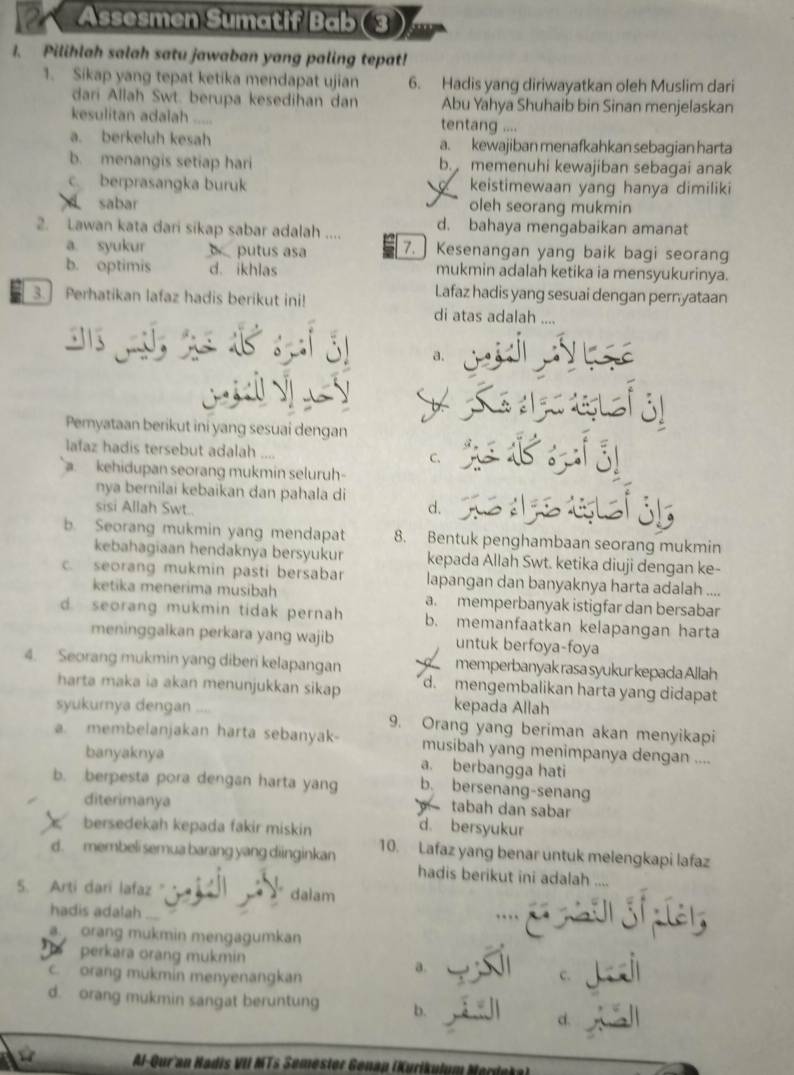 Assesmen Sumatif Bab 3
I. Pilihlah salah satu jawaban yang paling tepat!
1. Sikap yang tepat ketika mendapat ujian
dari Allah Swt. berupa kesedihan dan
kesulitan adalah .....
a. berkeluh kesah
b. menangis setiap hari
c. berprasangka buruk
sabar
2. Lawan kata dari sikap sabar adalah ....
a. syukur
putus asa
b. optimis
d. ikhlas
3. Perhatikan lafaz hadis berikut ini!
إِنَّ أَمْرَهُ كُلَّهُ خَيْرٌ وَلَيْسَ ذَلِكَ
لِأَحَدٍ إِلَّا لِلْمُؤْمِنِ
Pernyataan berikut ini yang sesuai dengan
lafaz hadis tersebut adalah ....
a. kehidupan seorang mukmin seluruh-
nya bernilai kebaikan dan pahala di
sisi Allah Swt..
b. Seorang mukmin yang mendapat
kebahagiaan hendaknya bersyukur
c. seorang mukmin pasti bersabar
ketika menerima musibah
d. seorang mukmin tidak pernah
meninggalkan perkara yang wajib
4. Seorang mukmin yang diberi kelapangan
harta maka ia akan menunjukkan sikap
syukurnya dengan ....
a. membelanjakan harta sebanyak-
banyaknya
b. berpesta pora dengan harta yang
diterimanya
bersedekah kepada fakir miskin
d. membeli semua barang yang diinginkan
5. Arti dari lafaz "لِأَمْرِ الْمُؤْمِنِ" dalam
hadis adalah ....
a. orang mukmin mengagumkan
perkara orang mukmin
c. orang mukmin menyenangkan
d. orang mukmin sangat beruntung
6. Hadis yang diriwayatkan oleh Muslim dari
Abu Yahya Shuhaib bin Sinan menjelaskan
tentang ....
a. kewajiban menafkahkan sebagian harta
b. memenuhi kewajiban sebagai anak
keistimewaan yang hanya dimiliki
oleh seorang mukmin
d. bahaya mengabaikan amanat
7. Kesenangan yang baik bagi seorang
mukmin adalah ketika ia mensyukurinya.
Lafaz hadis yang sesuai dengan pernyataan
di atas adalah ....
a. عَجَبًا لِأَمْرِ الْمُؤْمِنِ
إِنْ أَصَابَتْهُ سَرَّاءُ شَكَرَ
c. إِنَّ أَمْرَهُ كُلَّهُ خَيْرٌ
d. وَإِنْ أَصَابَتْهُ ضَرَّاءُ صَبَرَ
8. Bentuk penghambaan seorang mukmin
kepada Allah Swt. ketika diuji dengan ke-
lapangan dan banyaknya harta adalah ....
a. memperbanyak istigfar dan bersabar
b. memanfaatkan kelapangan harta
untuk berfoya-foya
memperbanyak rasa syukur kepada Allah
d. mengembalikan harta yang didapat
kepada Allah
9. Orang yang beriman akan menyikapi
musibah yang menimpanya dengan ....
a. berbangga hati
b. bersenang-senang
tabah dan sabar
d. bersyukur
10. Lafaz yang benar untuk melengkapi lafaz
hadis berikut ini adalah ....
وَاعْلَمْ أَنَّ النَّصْرَ مَعَ ....
a. الْكَرْبِ
c.
b.
d. الصَّبْرِ
Al-Qur'an Hadis VII MTs Semester Genap (Kurikulum Merdeka)